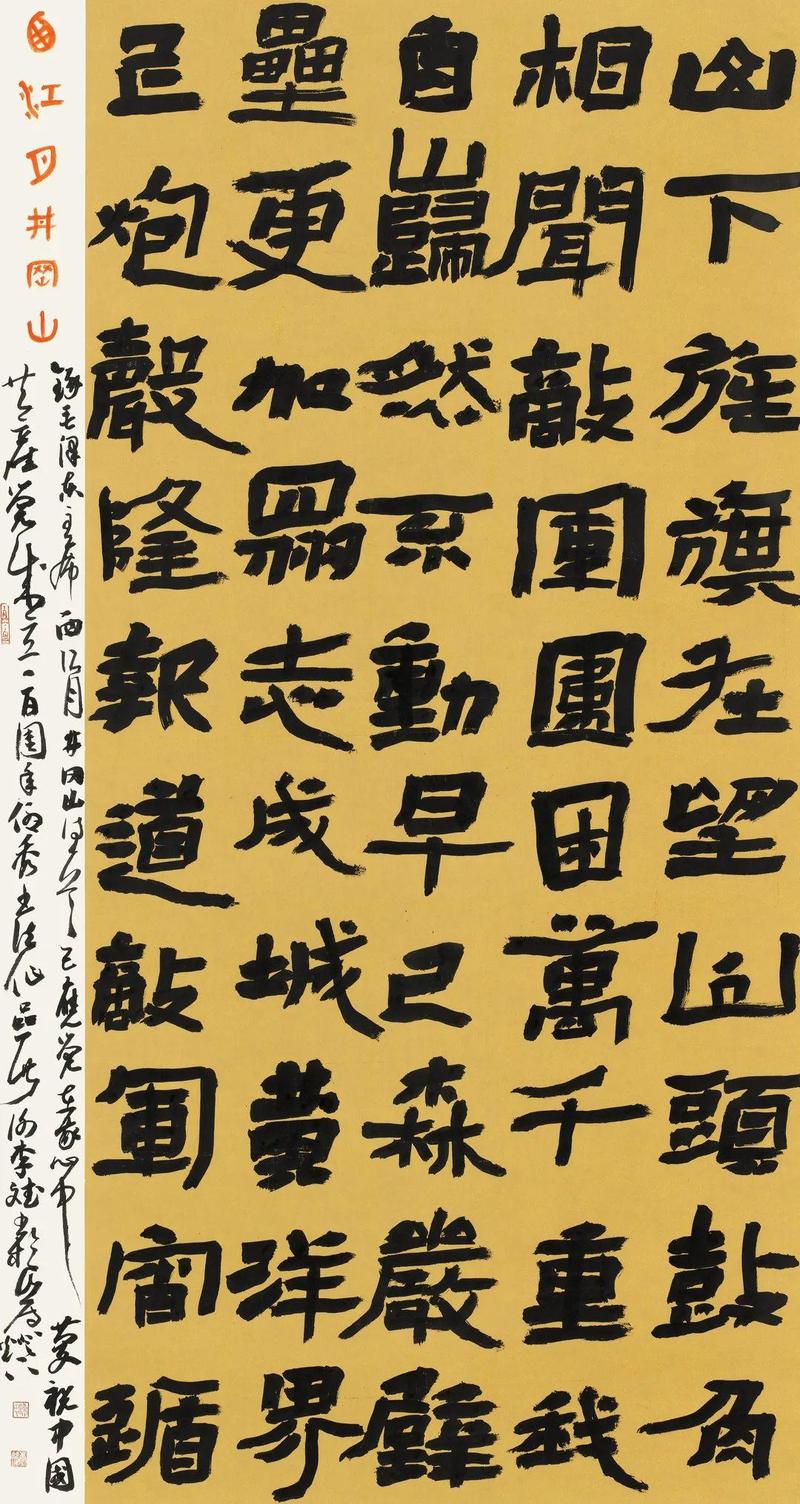 山下旌旗在望山頭鼓角
相聞敵軍圍困萬千重我
自巋然不動早已森嚴壁
壘更加眾志成城黃洋界
上炮聲隆報道敵軍宵遁
西江月井岡山
錄毛澤東主席西江月井岡山 党在我心中 慶祝中國
共產党成立一百周年 書法作品